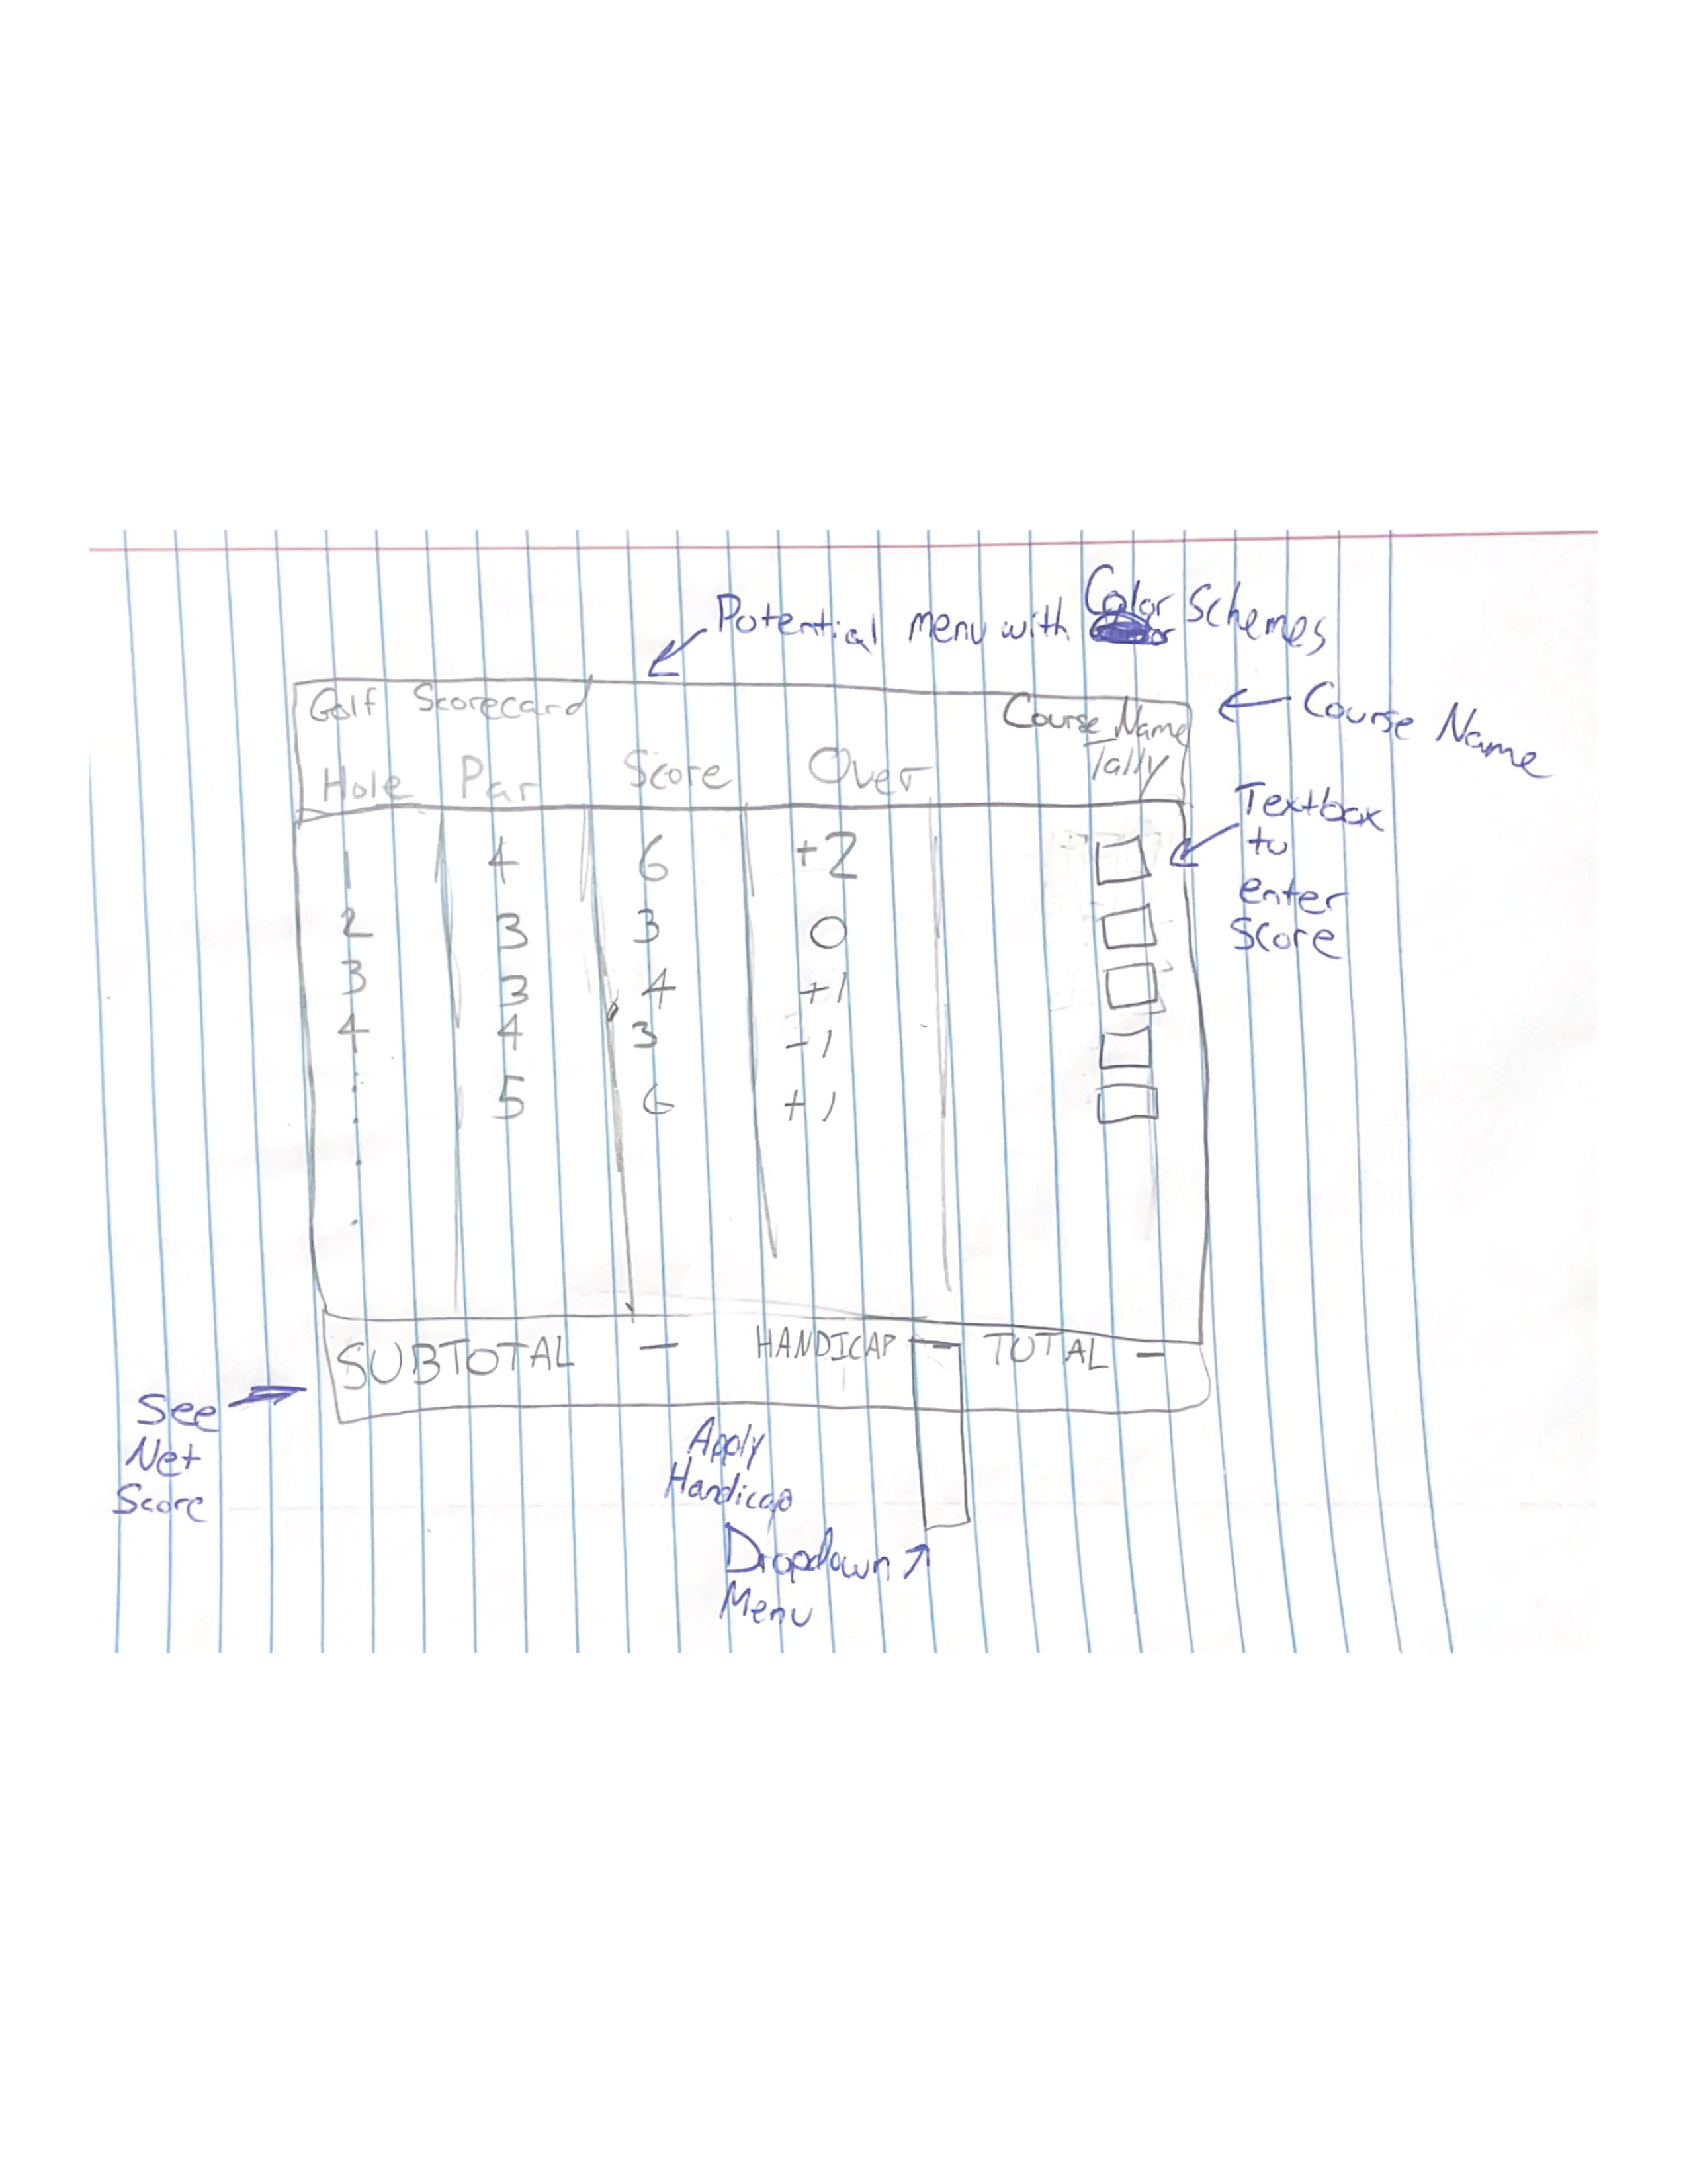 Potential menu with Color Schemes
Golf Scorecard
Course Name
Course Name
Hole Par Score Over Tally
1 4 6 +2
2 3 3 0
3 3 4 +1
4 4 3 -1
5 6 +1
Textbox
to
enter
Score
SUBTOTAL — HANDICAP — TOTAL —
See
Net
Score
Apply
Handicap
Dropdown
Menu